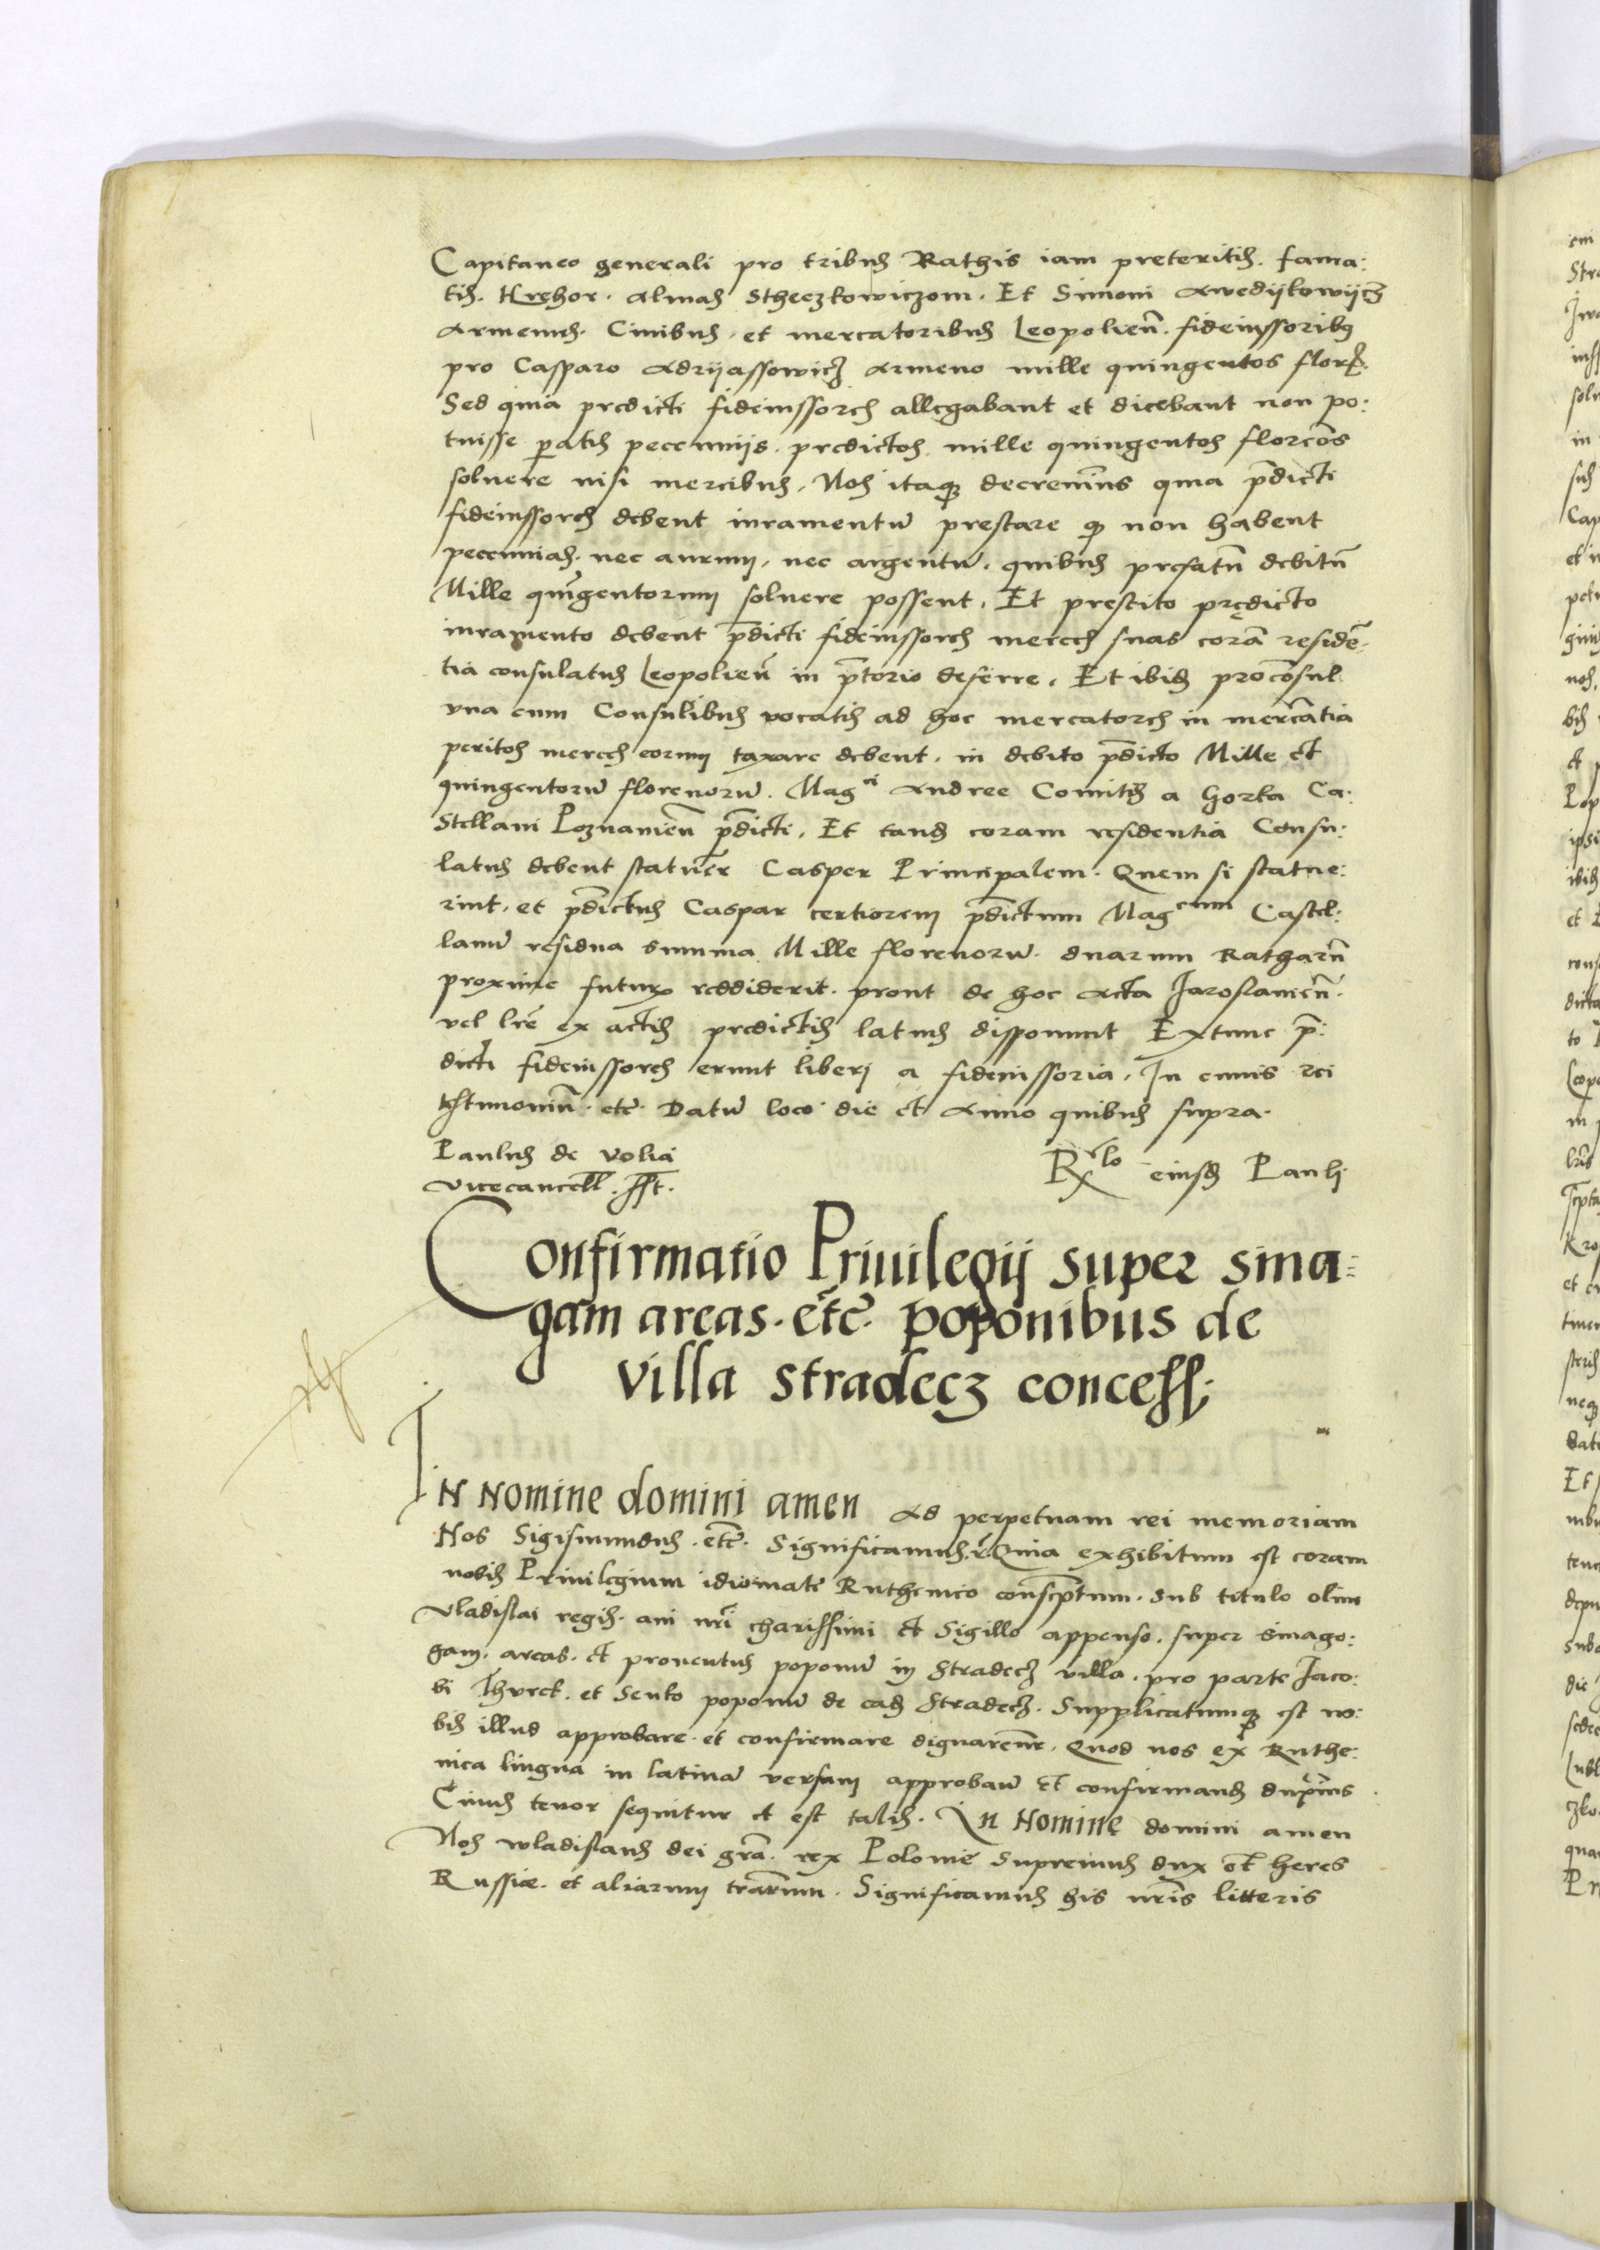 Capitaneo generali pro tribus Rathis iam preteritis. fama:
tis. Krehor. Almas Stheczkowiczom. Et Simoni Awedijkowijcz
Armenis. Ciuibus. et mercatoribus Leopolien̄. fideiussoribus
pro Casparo Adrijassowicz Armeno mille quingentos flor.
Sed quia predicti fideiussores allegabant et dicebant non po:
tuisse paratis peccunijs. predictos mille quingentos floreos
soluere nisi mercibus. Nos itaque decreuimus quia p̄dicti
fideiussores debent iuramentū prestare quod non habent
peccunias. nec aurum, nec argentū. quibus prefatū debitū
Mille quīgentorum soluere possent. Et prestito prędicto
iuramento debent p̄dicti fideiussores merces suas corā residē-
tia consulatus Leopolien̄ in p̄torio deferre. Et ibidem procōsul
vna cum Consulibus vocatis ad hoc mercatores in mercātia
peritos merces eorum taxare debent. in debito p̄dicto Mille et
quingentorū florenorū. Mag^ci Andree Comitis a Gorka Ca:
stellani Poznanień p̄dicti. Et tandem coram residentia Consu:
latus debent statuēr Casper Principalem. Quem si statue:
rint. et p̄dictus Caspar certiorem p̄dictum Mag^cum Castel:
lanū residua summa Mille florenorū. duarum Ratharū
proxime futurarum reddiderit. prout de hoc Acta Jaroslauień.
vel lr̄e ex actis predictis latius disponunt Extunc p̄:
dicti fideiussores erunt liberi a fideiussoria. In cuius rei
testimoniū. etc̄. Datū loco die et Anno quibus supra.
Paulus de Volia
vicecancell. sst.
R^lo eiusdem Pauli
Confirmatio Priuilegij super sina:
gam areas. etc̄. poponibus de
villa stradecz concess;
In nomine domini amen Ad perpetuam rei memoriam
Nos Sigismundus. etc̄. Significamus. Quia exhibitum est coram
nobis Priuilegium idiomate Ruthenico conscp̄tum. sub titulo olim
Vladislai regis. aui nr̄i charissimi et Sigillo appenso. super sinago:
gam. areas. et prouentus poponū in Stradecz villa. pro parte Jaco:
bi Thurek. et Senko poponū de eadem Stradecz. Supplicatumque est no:
bis illud approbare. et confirmare dignaremr. Quod nos ex Ruthe:
nica lingua in latinā versum approbaū et confirmandum duximus.
Cuius tenor sequitur et est talis. In Nomine domini amen
Nos wladislaus dei gr̄a. rex Polonie Supremus dux et heres
Russiæ. et aliarum tr̄arum. Significamus his nr̄is litteris